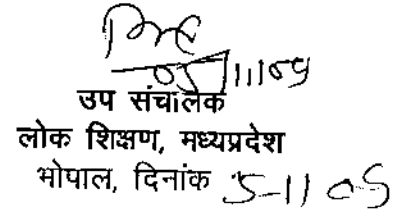 05/11/09
उप संचालक
लोक शिक्षण, मध्यप्रदेश
भोपाल, दिनांक 5-11 09